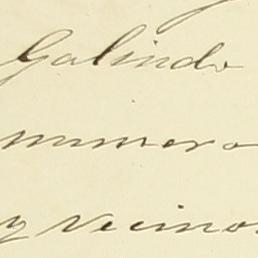 Galindo
numero
y vecino